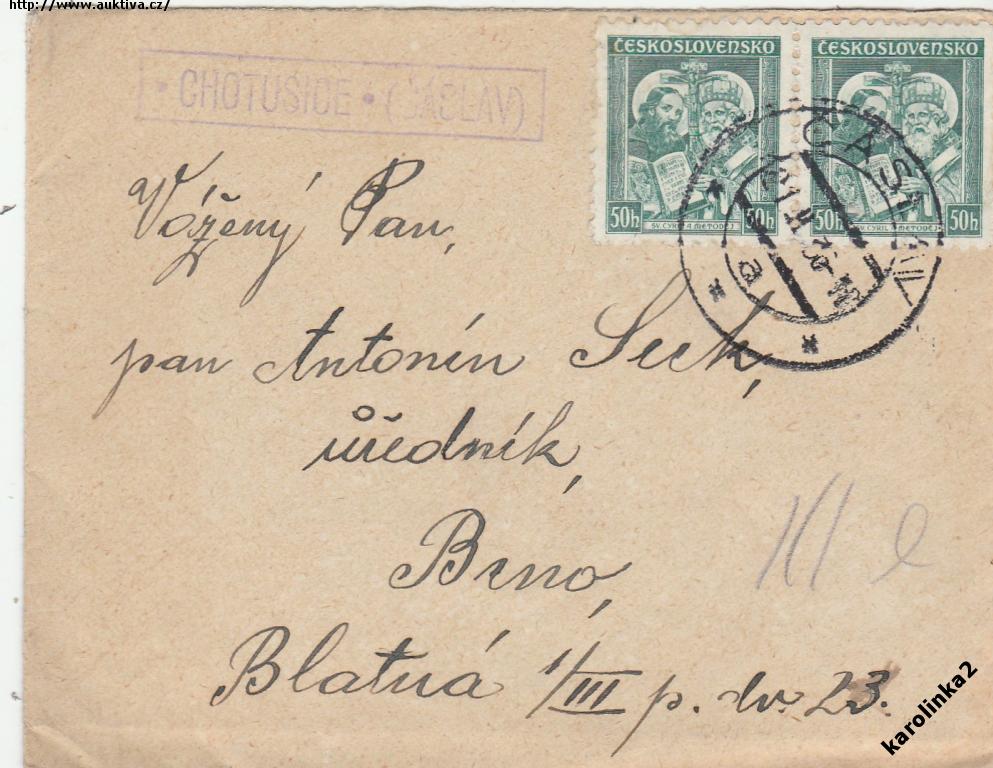 http://www.auktiva.cz/
• CHOTUSICE • (ČÁSLAV)
ČESKOSLOVENSKO
50h 50h
SV. CYRIL A METODĚJ
ČESKOSLOVENSKO
50h 50h
SV. CYRIL A METODĚJ
ČÁSLAV
a
Vážený Pan,
pan Antonín Seck,
úředník,
Brno,
Blatná 1/III p. dv. 23.
karolinka2